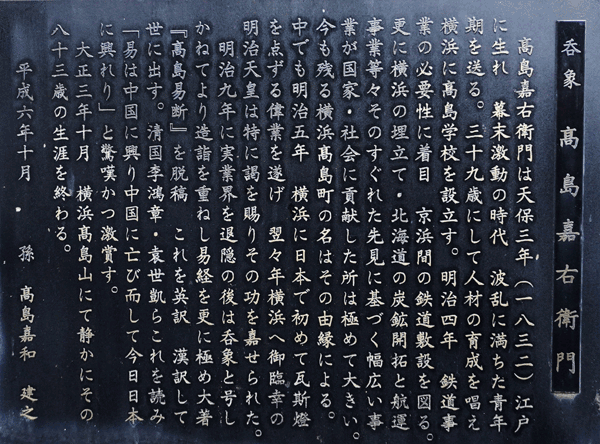 呑象 高島嘉右衛門
高島嘉右衛門は天保三年(一八三二)江戸
に生れ 幕末激動の時代 波乱に満ちた青年
期を送る。三十九歳にして人材の育成を唱え
横浜に高島学校を設立す。明治四年 鉄道事
業の必要性に着目 京浜間の鉄道敷設を図る
更に横浜の埋立て・北海道の炭鉱開拓と航運
事業等々そのすぐれた先見に基づく幅広い事
業が国家・社会に貢献した所は極めて大きい。
今も残る横浜高島町の名はその由縁による。
中でも明治五年 横浜に日本で初めて瓦斯燈
を点ずる偉業を遂げ 翌々年横浜へ御臨幸の
明治天皇は特に謁を賜りその功を嘉せられた。
明治九年に実業界を退隠の後は呑象と号し
かねてより造詣を重ねし易経を更に極め大著
『高島易断』を脱稿 これを英訳 漢訳して
世に出す。清国李鴻章・袁世凱らこれを読み
「易は中国に興り中国に亡び而して今日日本
に興れり」と驚嘆かつ激賞す。
大正三年十月 横浜高島山にて静かにその
八十三歳の生涯を終わる。
平成六年十月 孫 高島嘉和 建之